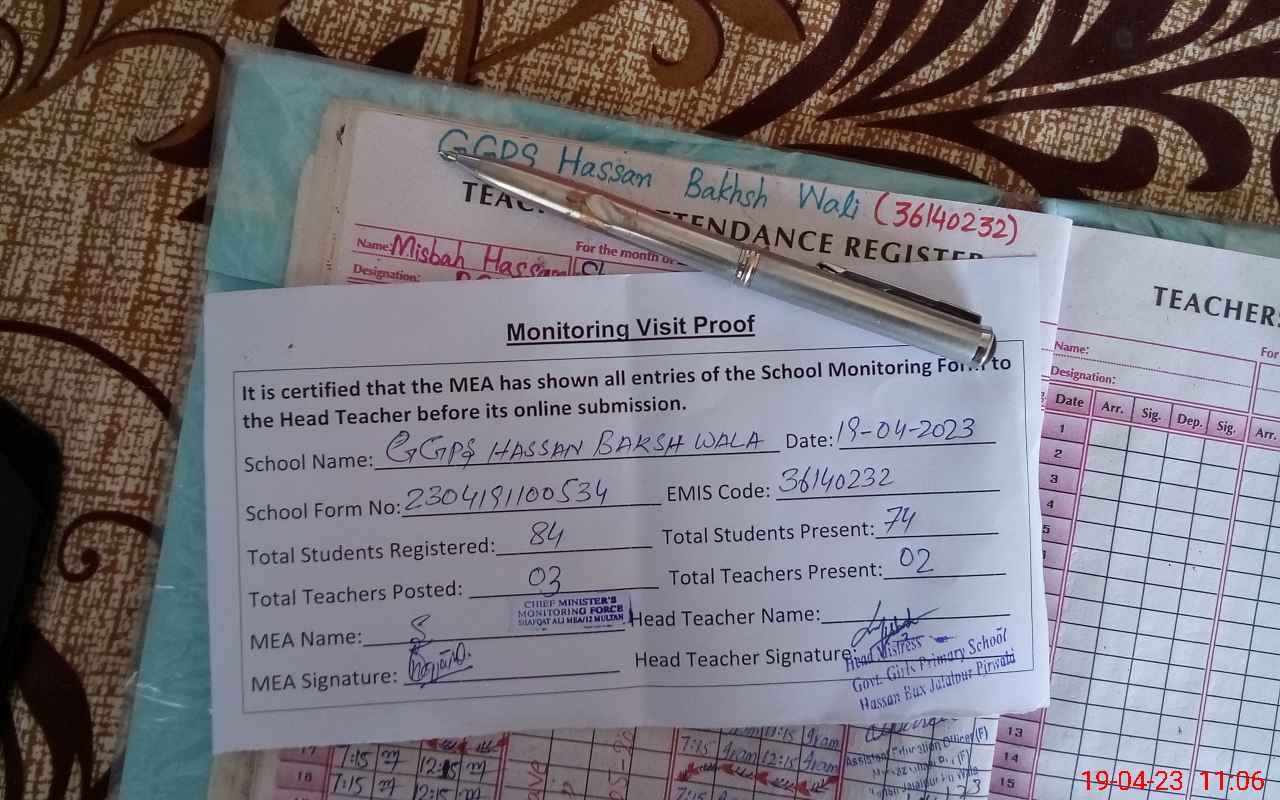 GGPS Hassan Bakhsh Wali (36140232)
TEAC TENDANCE REGISTER
Name: Misbah Hassan
For the month of
Designation:
Monitoring Visit Proof
It is certified that the MEA has shown all entries of the School Monitoring Form to
the Head Teacher before its online submission.
School Name: GGPS HASSAN BAKSH WALA Date: 19-04-2023
School Form No: 2304191100534 EMIS Code: 36140232
Total Students Registered: 84 Total Students Present: 74
Total Teachers Posted: 03 Total Teachers Present: 02
CHIEF MINISTER'S
MONITORING FORCE
SHAFQAT ALI MEA/12 MULTAN
MEA Name: Head Teacher Name:
MEA Signature: Head Teacher Signature:
Head Mistress
Govt. Girls Primary School
Hassan Bux Jalalpur Pirwala
TEACHERS
Name: For
Designation:
Date Arr. Sig. Dep. Sig. Arr.
1
2
3
4
5
13
14
15
17 7:15 12:15
16 7:15 12:15
7:15 12:15
Assistant Education Officer (F)
19-04-23 11:06